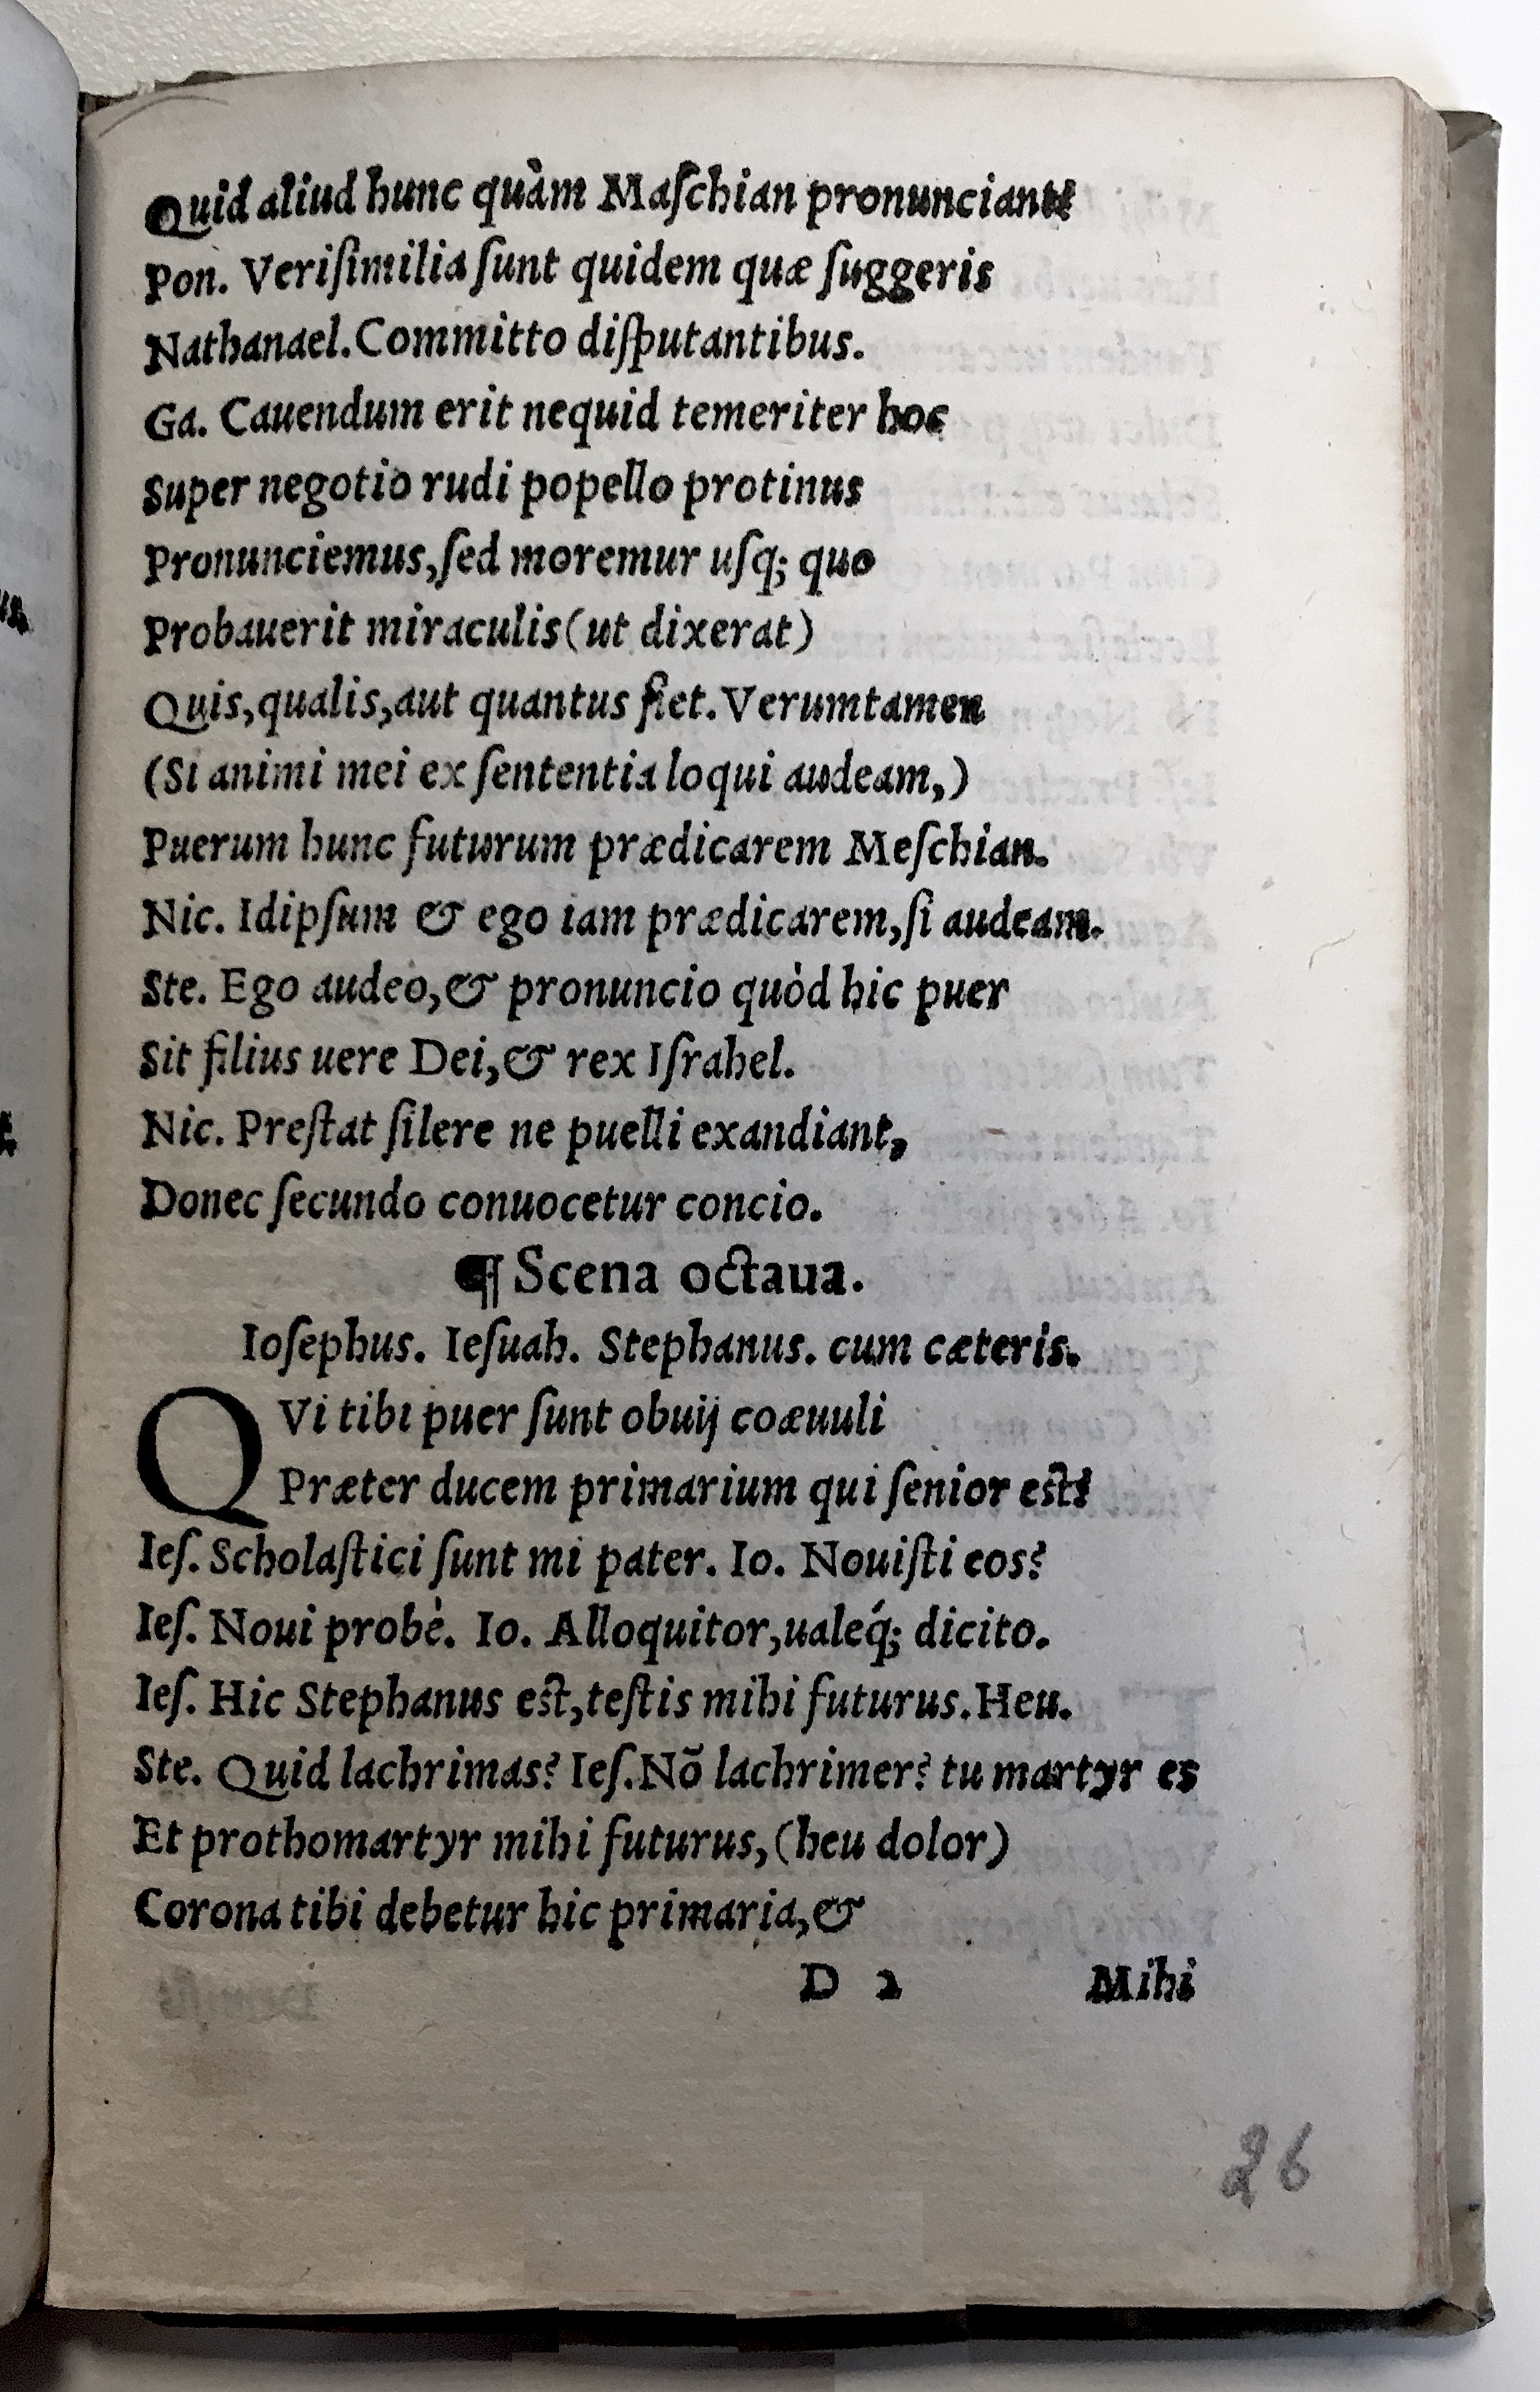 Quid aliud hunc quàm Maſchian pronunciant?
Pon. Veriſimilia ſunt quidem quæ ſuggeris
Nathanael. Committo diſputantibus.
Ga. Cauendum erit nequid temeriter hoc
Super negotio rudi popello protinus
Pronunciemus, ſed moremur uſq; quo
Probauerit miraculis (ut dixerat)
Quis, qualis, aut quantus fiet. Verumtamen
(Si animi mei ex ſententia loqui audeam,)
Puerum hunc futurum prædicarem Meſchian.
Nic. Idipſum & ego iam prædicarem, ſi audeam.
Ste. Ego audeo, & pronuncio quòd hic puer
Sit filius uere Dei, & rex Iſrahel.
Nic. Preſtat ſilere ne puelli exandiant,
Donec ſecundo conuocetur concio.
¶ Scena octaua.
Ioſephus. Ieſuah. Stephanus. cum cæteris.
QVi tibi puer ſunt obuij coæuuli
Præter ducem primarium qui ſenior eſt?
Ieſ. Scholaſtici ſunt mi pater. Io. Nouiſti eos?
Ieſ. Noui probè. Io. Alloquitor, ualeq́; dicito.
Ieſ. Hic Stephanus eſt, teſtis mihi futurus. Heu.
Ste. Quid lachrimas? Ieſ. Nõ lachrimer? tu martyr es
Et prothomartyr mihi futurus, (heu dolor)
Corona tibi debetur hic primaria, &
D 2 Mihi
26